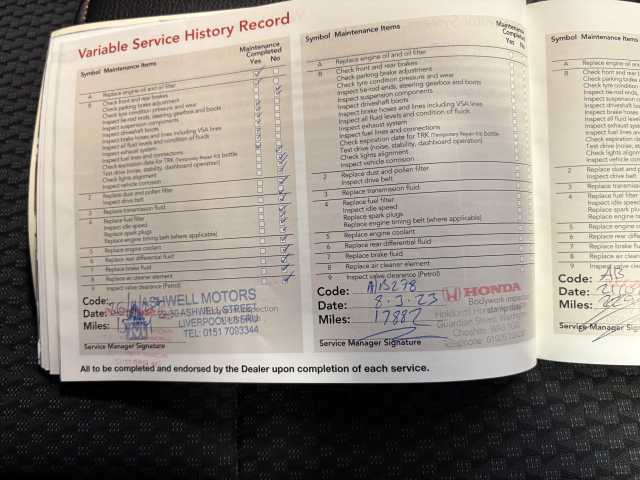 Variable Service History Record
Symbol Maintenance Items
Maintenance
Completed
Yes No
A Replace engine oil and oil filter
B Check front and rear brakes
Check parking brake adjustment
Check tyre condition pressure and wear
Inspect tie-rod ends, steering gearbox and boots
Inspect suspension components
Inspect driveshaft boots
Inspect brake hoses and lines including VSA lines
Inspect all fluid levels and condition of fluids
Inspect exhaust system
Inspect fuel lines and connections
Check expiration date for TRK (Temporary Repair Kit) bottle
Test drive (noise, stability, dashboard operation)
Check lights alignment
Inspect vehicle corrosion
2 Replace dust and pollen filter
Inspect drive belt
3 Replace transmission fluid
4 Replace fuel filter
Inspect idle speed
Replace spark plugs
Replace engine timing belt (where applicable)
5 Replace engine coolant
6 Replace rear differential fluid
7 Replace brake fluid
8 Replace air cleaner element
9 Inspect valve clearance (Petrol)
Code:
Date:
Miles:
ASHWELL MOTORS
ASHWELL STREET
LIVERPOOL
TEL: 0151 7093344
Service Manager Signature
Symbol Maintenance Items
Maintenance
Completed
Yes No
A Replace engine oil and oil filter
B Check front and rear brakes
Check parking brake adjustment
Check tyre condition pressure and wear
Inspect tie-rod ends, steering gearbox and boots
Inspect suspension components
Inspect driveshaft boots
Inspect brake hoses and lines including VSA lines
Inspect all fluid levels and condition of fluids
Inspect exhaust system
Inspect fuel lines and connections
Check expiration date for TRK (Temporary Repair Kit) bottle
Test drive (noise, stability, dashboard operation)
Check lights alignment
Inspect vehicle corrosion
2 Replace dust and pollen filter
Inspect drive belt
3 Replace transmission fluid
4 Replace fuel filter
Inspect idle speed
Replace spark plugs
Replace engine timing belt (where applicable)
5 Replace engine coolant
6 Replace rear differential fluid
7 Replace brake fluid
8 Replace air cleaner element
9 Inspect valve clearance (Petrol)
Code: A1B278
Date: 8.3.23
Miles: 17887
HONDA
Bodywork
Honda
Guardian Street,
Cheshire,
Telephone: 01925
Service Manager Signature
Symbol Maintenance Items
A Replace engine oil and
B Check front and rear
Check parking brake
Check tyre condition
Inspect tie-rod ends,
Inspect suspension
Inspect driveshaft
Inspect brake hoses
Inspect all fluid levels
Inspect exhaust
Inspect fuel lines and
Check expiration date
Test drive (noise,
Check lights
Inspect vehicle
2 Replace dust and
Inspect drive belt
3 Replace
4 Replace fuel filter
Inspect idle speed
Replace spark
Replace engine
5 Replace engine
6 Replace rear
7 Replace brake
8 Replace air
9 Inspect valve
Code:
Date:
Miles:
Service Manager
All to be completed and endorsed by the Dealer upon completion of each service.